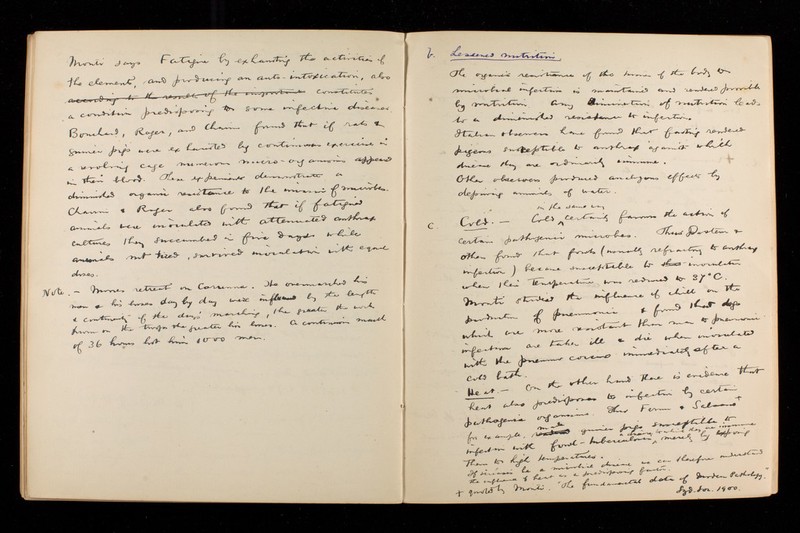 Monti says Fatigue by exhausting the activities of
the elements, and producing an auto-intoxication, also
according to the results of the constitutes
a condition predisposing to some infective diseases
Bouchard, Roger, and Charrin found that if rats &
guinea pigs were exhausted by continuous exercise in
a revolving cage numerous micro-organisms appeared
in their blood. These experiments demonstrate a
diminished organic resistance to the invasion of microbes.
Charrin & Roger also found that if fatigued
animals were inoculated with attenuated anthrax
cultures they succumbed in five days while
animals not tired, survived inoculation with equal
doses.
Note. - Moores retreat on Corunna. He overmarched his
men & his losses day by day were influenced by the length
& continuity of the day's marching, the greater the work
thrown on the troops the greater his losses. A continuous march
of 36 hours lost him 1000 men.
b. Lessened nutrition.
The organic resistance of the tissues of the body to
microbial infection is maintained and rendered possible
by nutrition. Any diminution of nutrition leads
to a diminished resistance to infection.
Italian observers have found that fasting rendered
pigeons susceptible to anthrax against which
disease they are ordinarily immune.
Other observers produced analogous effects by
depriving animals of water.
in the same way
c Cold. - Cold certainly favours the action of
certain pathogenic microbes. Thus Pasteur &
others found that fowls (usually refractory to anthrax
infection) became susceptible to inoculation
when their temperature was reduced to 37°C.
Monti studied the influence of chill on the
production of pneumonia & found that dogs
which are more resistant than man to pneumonic
infection are taken ill & die when inoculated
with the pneumococcus immediately after a
cold bath.
Heat. - On the other hand there is evidence that
heat also predisposes to infection by certain
pathogenic organisms. Thus Fermi & Salsano +
for example, made guinea pigs susceptible to
infection with fowl-tuberculosis, merely by exposing
a disease to which they are immune
them to high temperatures.
If sunstroke be a microbial disease we can therefore understand
the influence of heat as a predisposing factor.
+ quoted by Monti. "The fundamental data of Modern Pathology."
Syd. Soc. 1900.